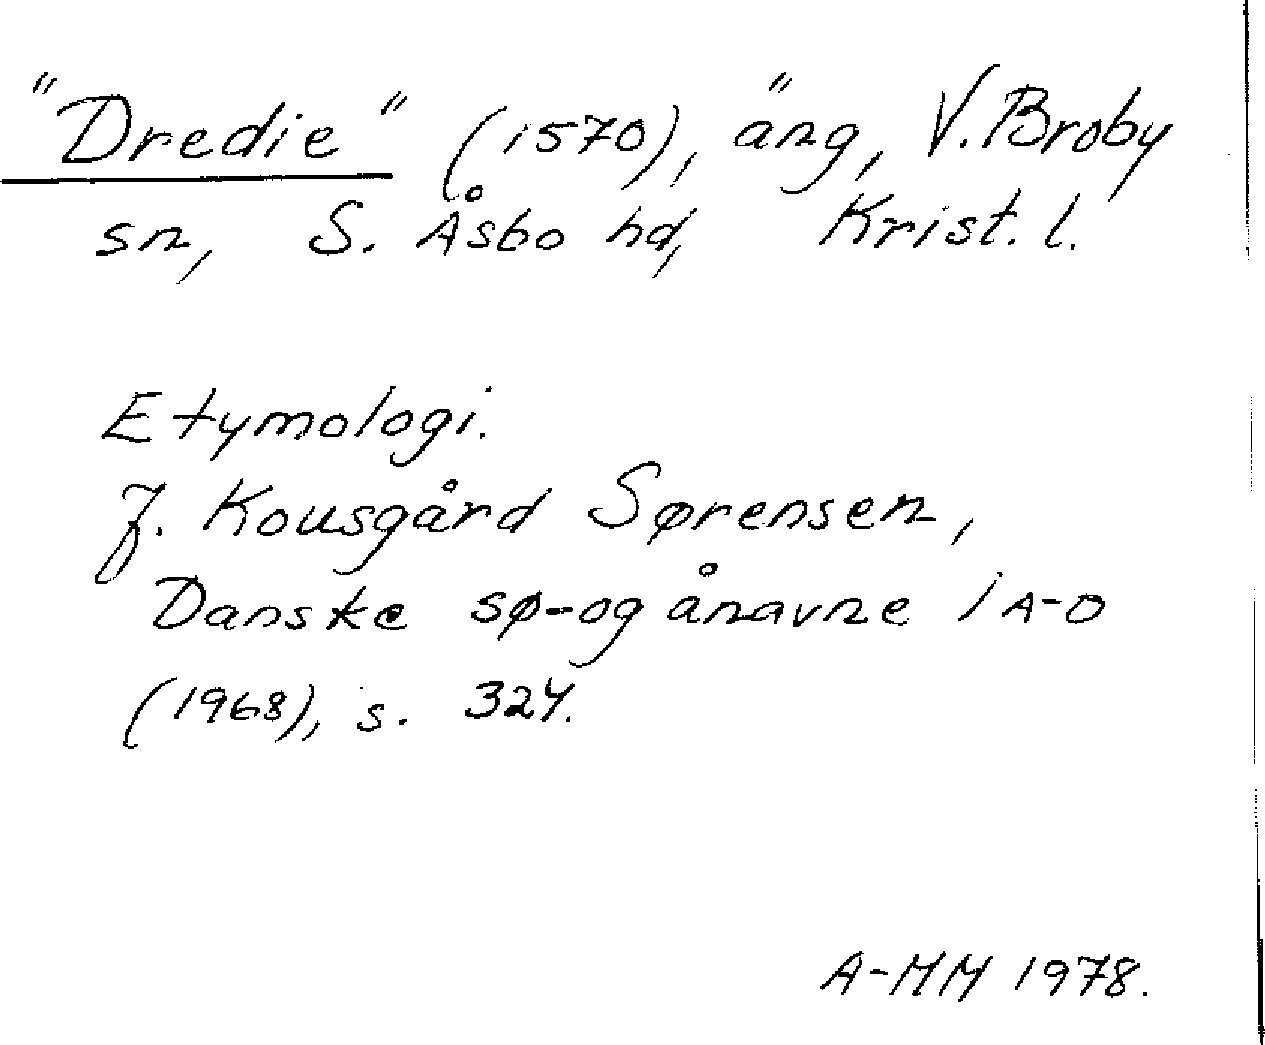 "Dredie" (1570), äng, V. Broby
sn, S. Åsbo hd, Krist. l.
Etymologi.
J. Kousgård Sørensen,
Danske sø- og ånavne 1 A-D
(1968), s. 324.
A-MM 1978.